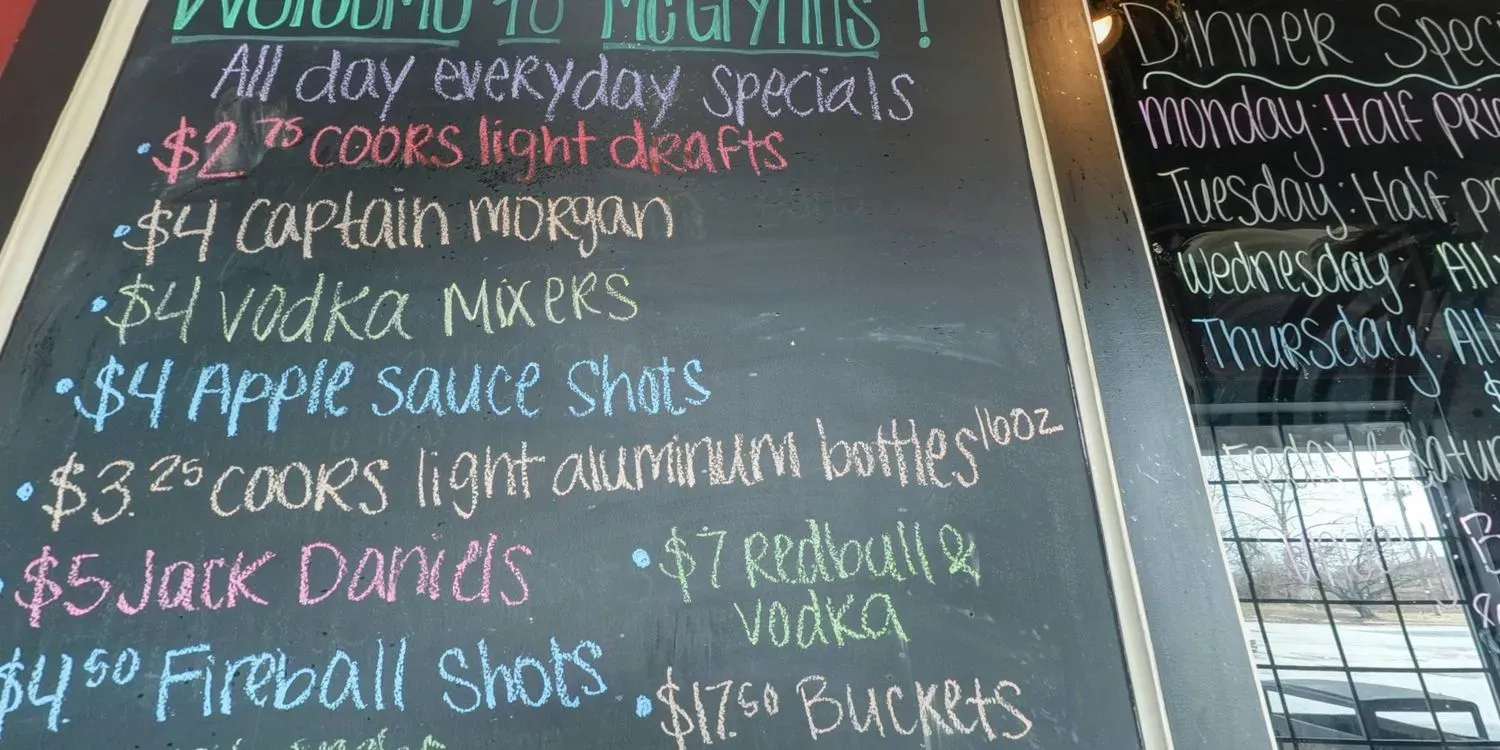 Welcome to McGlynns !
All day everyday specials
• $2.75 COORS light drafts
• $4 Captain Morgan
• $4 Vodka Mixers
• $4 Apple sauce shots
• $3.25 COORS light aluminum bottles 16oz
• $5 Jack Daniels
• $7 Redbull &
vodka
$4.50 Fireball shots
• $17.50 Buckets
Dinner Spec
Monday: Half pri
Tuesday: Half pr
Wednesday: All
Thursday: All
$
Friday & Satur